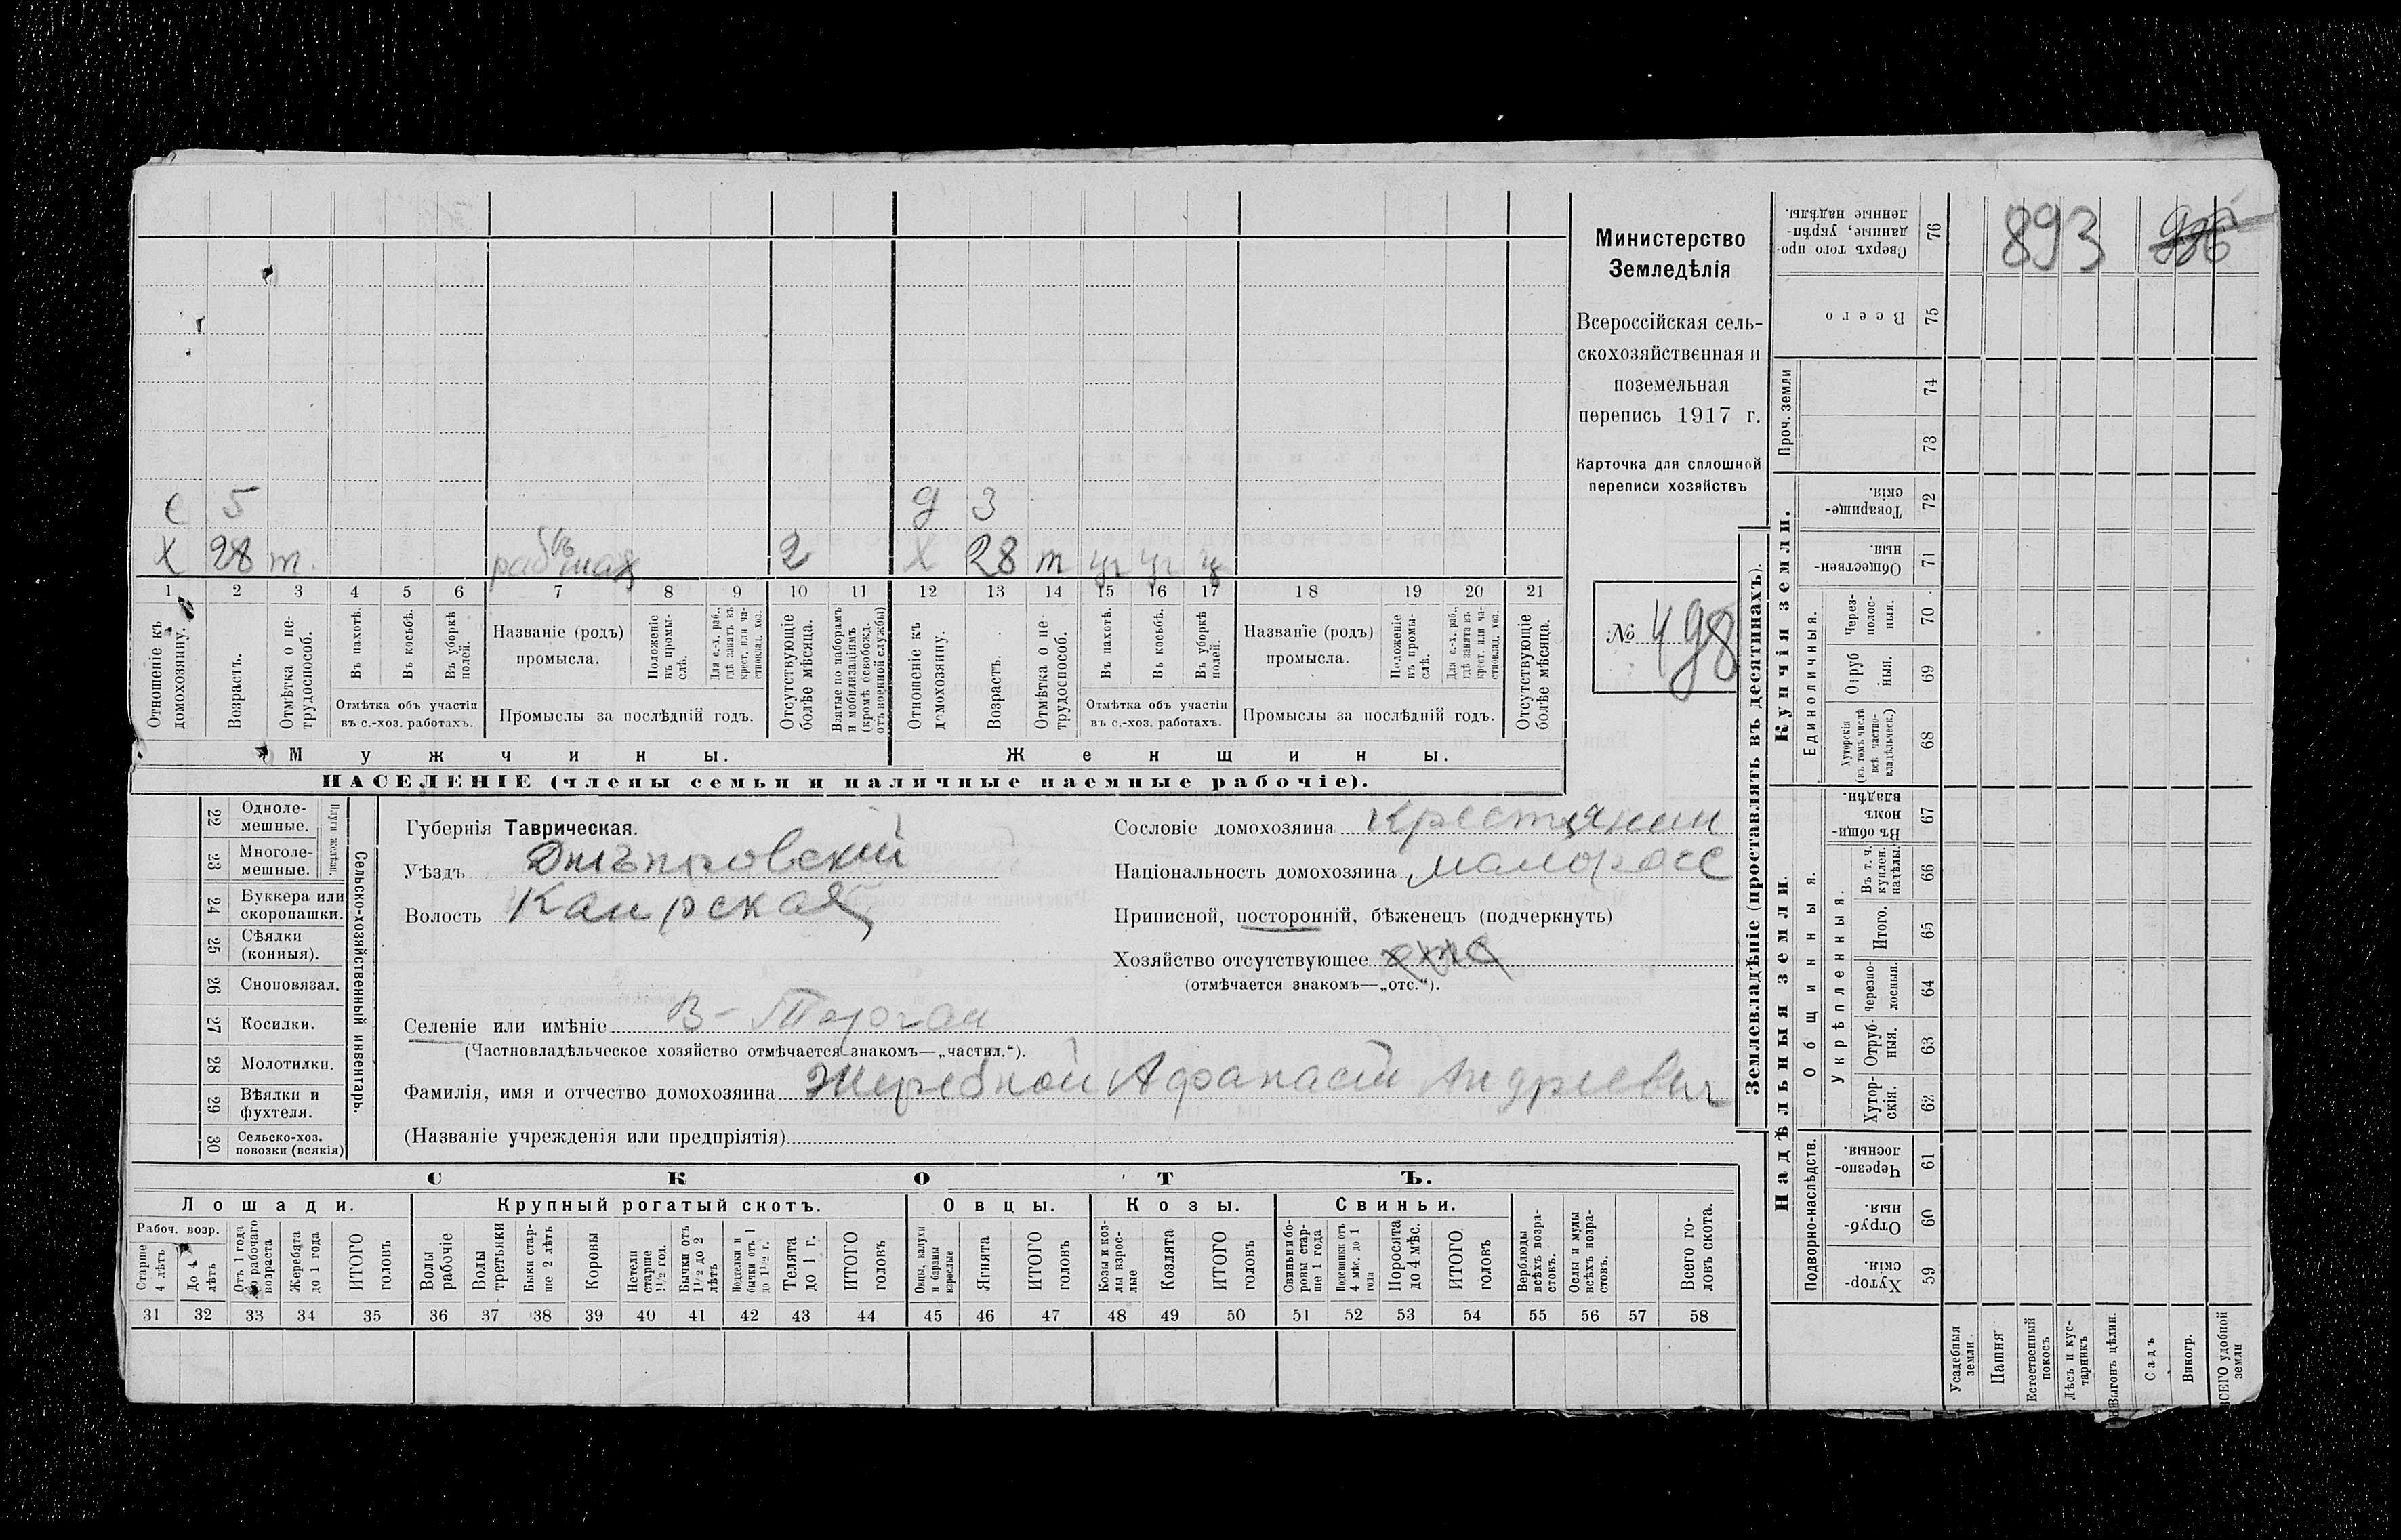 893
Министерство
Земледѣлія
Всероссійская сель-
скохозяйственная и
поземельная
перепись 1917 г.
Карточка для сплошной
переписи хозяйствъ
№ 498
с 5
д 3
Х 28 т.
2
Х 28 т
1 2 3 4 5 6 7 8 9 10 11 12 13 14 15 16 17 18 19 20 21
Отношеніе къ домохозяину.
Возрастъ.
Отмѣтка о не-трудоспособ.
Въ пахотѣ.
Въ косьбѣ.
Въ уборкѣ полей.
Отмѣтка объ участіи
въ с.-хоз. работахъ.
Названіе (родъ)
промысла.
Положеніе въ промы-слѣ.
Для с.-х. раб., гдѣ занятъ въ крест. или ча-стновлад. хоз.
Промыслы за послѣдній годъ.
Отсутствующіе болѣе мѣсяца.
Взятые по наборамъ и мобилизаціямъ (кромѣ освобожд. отъ военной службы)
Отношеніе къ домохозяину.
Возрастъ.
Отмѣтка о не-трудоспособ.
Въ пахотѣ.
Въ косьбѣ.
Въ уборкѣ полей.
Отмѣтка объ участіи
въ с.-хоз. работахъ.
Названіе (родъ)
промысла.
Положеніе въ промы-слѣ.
Для с.-х. раб., гдѣ занята въ крест. или ча-стновлад. хоз.
Промыслы за послѣдній годъ.
Отсутствующіе болѣе мѣсяца.
Мужчины.
Женщины.
НАСЕЛЕНІЕ (члены семьи и наличные наемные рабочіе).
22 Одноле-мешные.
23 Многоле-мешные.
Плуги желѣзн.
24 Буккера или скоропашки.
25 Сѣялки (конныя).
26 Сноповязал.
27 Косилки.
28 Молотилки.
29 Вѣялки и фухтеля.
30 Сельско-хоз. повозки (всякія)
Сельско-хозяйственный инвентарь.
Губернія Таврическая.
Уѣздъ Днѣпровскій
Волость Каирская
Сословіе домохозяина крестянин
Національность домохозяина малоросс
Приписной, посторонній, бѣженецъ (подчеркнуть)
Хозяйство отсутствующее
(отмѣчается знакомъ—„отс.“).
Селеніе или имѣніе В-Торгаи
(Частновладѣльческое хозяйство отмѣчается знакомъ—„частвл.“).
Фамилія, имя и отчество домохозяина Жеребной Афанасій Андреевич
(Названіе учрежденія или предпріятія)
СКОТЪ.
Лошади.
Крупный рогатый скотъ.
Овцы.
Козы.
Свиньи.
Рабоч. возр.
Старше 4 лѣтъ
До 4 лѣтъ
Отъ 1 года до рабочаго возраста
Жеребята до 1 года
ИТОГО головъ
Волы рабочіе
Волы третьяки
Быки стар-ше 2 лѣтъ
Коровы
Нетели старше 1½ год.
Бычки отъ 1½ до 2 лѣтъ
Подтелки и бычки отъ 1 до 1½ г.
Телята до 1 г.
ИТОГО головъ
Овцы, валухи и бараны взрослые
Ягнята
ИТОГО головъ
Козы и коз-лы взрос-лые
Козлята
ИТОГО головъ
Свиньи и бо-ровы стар-ше 1 года
Подсвинки отъ 4 мѣс. до 1 года
Поросята до 4 мѣс.
ИТОГО головъ
Верблюды всѣхъ возра-стовъ.
Ослы и мулы всѣхъ возра-стовъ.
Всего го-ловъ скота.
31 32 33 34 35 36 37 38 39 40 41 42 43 44 45 46 47 48 49 50 51 52 53 54 55 56 57 58
Землевладѣніе (проставлять въ десятинахъ).
Купчія земли.
Надѣльныя земли.
Сверхъ того про-данные, укрѣп-ленные надѣлы. 76
Всего 75
Проч. земли
74
73
Товарище-скія. 72
Обществен-ныя. 71
Единоличныя.
Через-полос-ныя. 70
Отруб-ныя. 69
Хуторскія (въ томъ числѣ всѣ частно-владѣльческ.) 68
Общинныя.
Въ общин-номъ владѣн. 67
Укрѣпленныя.
Въ т. ч. куплен. надѣлы. 66
Итого. 65
Черезпо-лосныя. 64
Отруб-ныя. 63
Хутор-скія. 62
Подворно-наслѣдств.
Черезпо-лосныя. 61
Отруб-ныя. 60
Хутор-скія. 59
Усадебныя земли
Пашня
Естественный покосъ
Лѣсъ и кус-тарникъ
Выгонъ цѣлин.
Садъ
Виногр.
ВСЕГО удобной земли